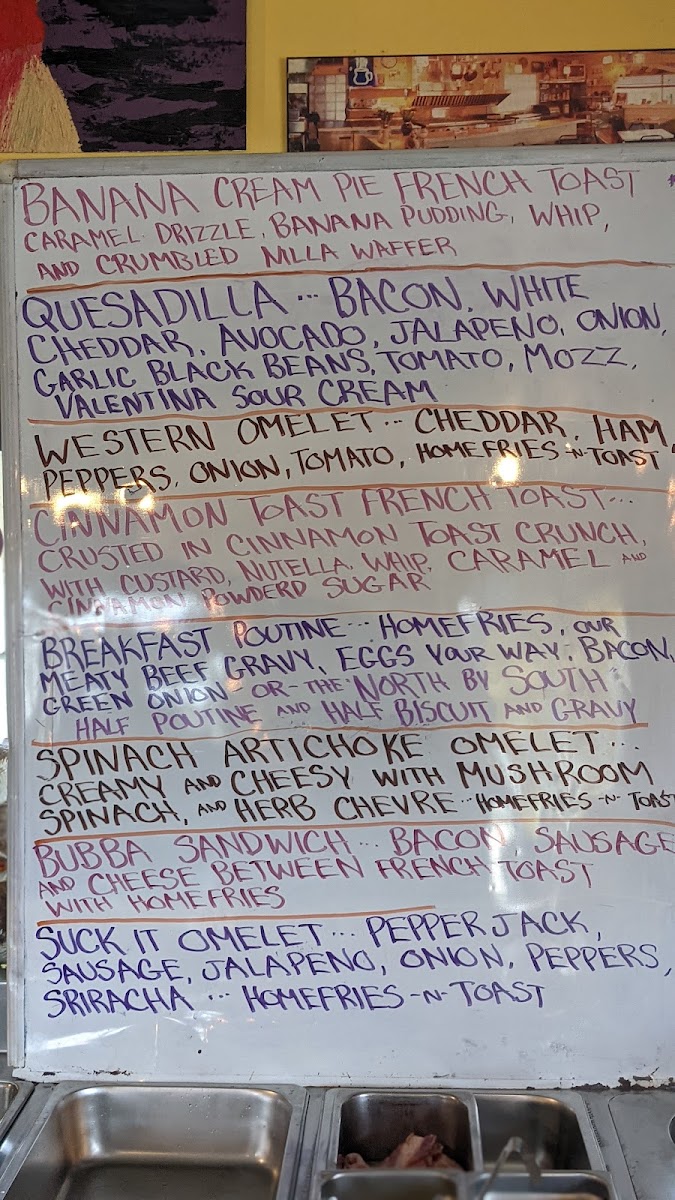 BANANA CREAM PIE FRENCH TOAST
CARAMEL DRIZZLE, BANANA PUDDING, WHIP,
AND CRUMBLED NILLA WAFFER
QUESADILLA ... BACON, WHITE
CHEDDAR, AVOCADO, JALAPENO, ONION,
GARLIC BLACK BEANS, TOMATO, MOZZ,
VALENTINA SOUR CREAM
WESTERN OMELET ... CHEDDAR, HAM,
PEPPERS, ONION, TOMATO, HOMEFRIES -N- TOAST
CINNAMON TOAST FRENCH TOAST...
CRUSTED IN CINNAMON TOAST CRUNCH,
WITH CUSTARD, NUTELLA, WHIP, CARAMEL AND
CINNAMON POWDERD SUGAR
BREAKFAST POUTINE ... HOMEFRIES, OUR
MEATY BEEF GRAVY, EGGS YOUR WAY, BACON,
GREEN ONION OR THE "NORTH BY SOUTH"
HALF POUTINE AND HALF BISCUIT AND GRAVY
SPINACH ARTICHOKE OMELET ...
CREAMY AND CHEESY WITH MUSHROOM
SPINACH, AND HERB CHEVRE ... HOMEFRIES -N- TOAST
BUBBA SANDWICH ... BACON, SAUSAGE
AND CHEESE BETWEEN FRENCH TOAST
WITH HOMEFRIES
SUCK IT OMELET ... PEPPER JACK,
SAUSAGE, JALAPENO, ONION, PEPPERS,
SRIRACHA ... HOMEFRIES -N- TOAST